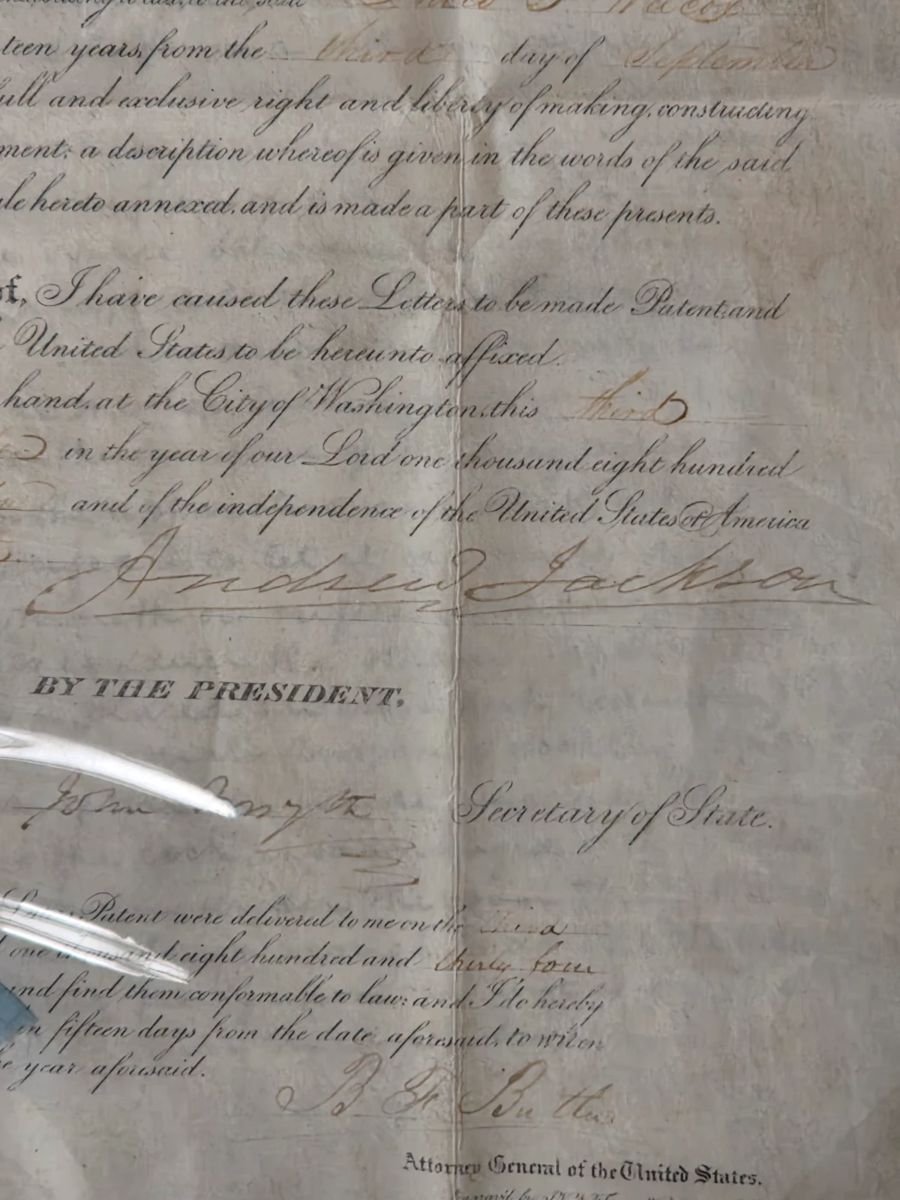 teen years, from the third day of September
full and exclusive right and liberty of making, constructing
ment; a description whereof is given in the words of the said
ule hereto annexed, and is made a part of these presents.
of, I have caused these Letters to be made Patent, and
United States to be hereunto affixed.
hand, at the City of Washington, this third
in the year of our Lord one thousand eight hundred
and of the independence of the United States of America
Andrew Jackson
BY THE PRESIDENT,
John Forsyth Secretary of State.
Patent were delivered to me on the third
one thousand eight hundred and thirty four
and find them conformable to law: and I do hereby
in fifteen days from the date aforesaid, to wit on
year aforesaid.
B. F. Butler
Attorney General of the United States.